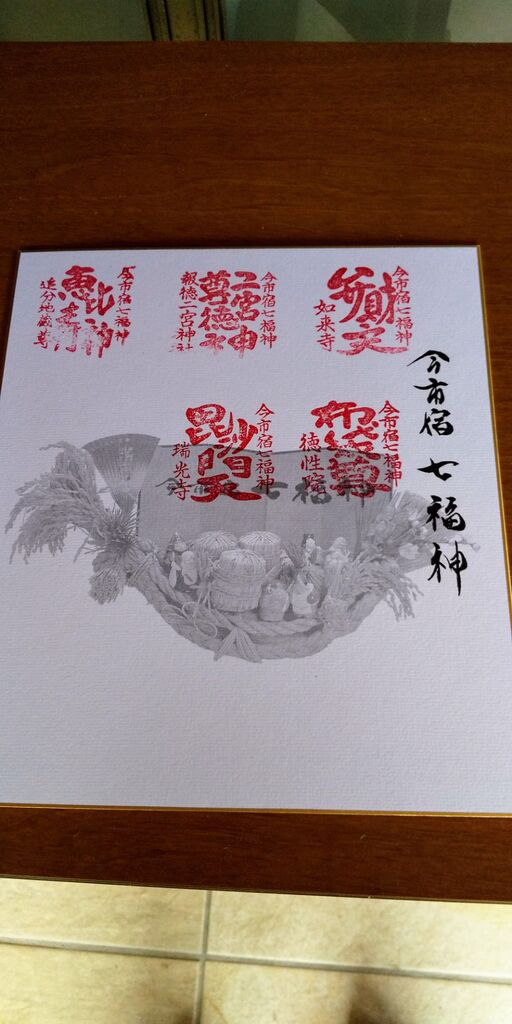 今市宿 七福神
今市宿七福神
弁財天
如来寺
今市宿七福神
二宮神
尊徳
報徳二宮神社
今市宿七福神
恵比寿神
追分地蔵尊
今市宿七福神
布袋尊
徳性院
今市宿七福神
毘沙門天
瑞光寺
七福神